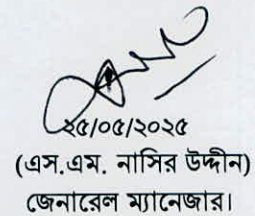 ২৫/০৫/২০২৫
(এস.এম. নাসির উদ্দীন)
জেনারেল ম্যানেজার।